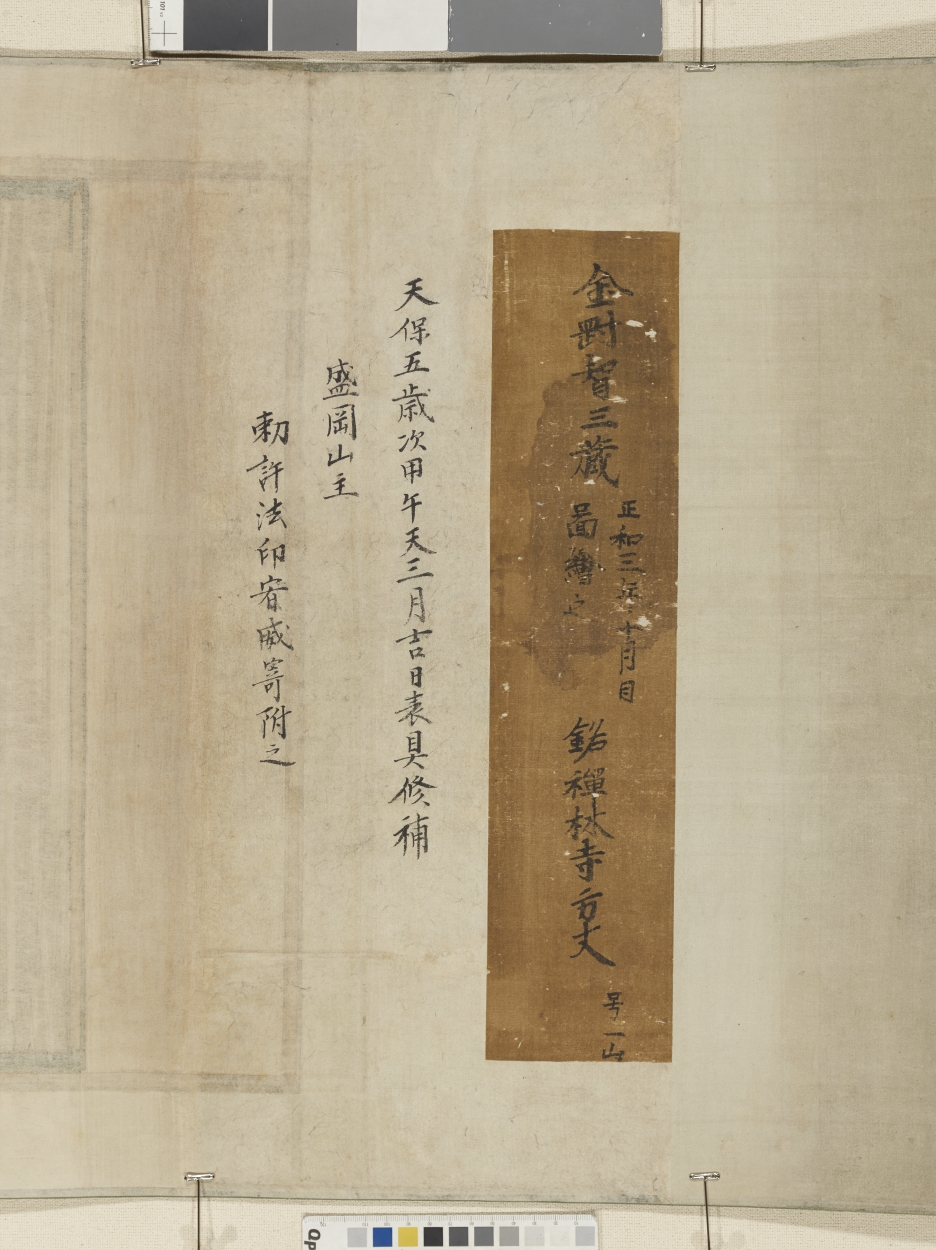 金剛智三蔵
正和三年十月日
啚繪之
銘禅林寺方丈
号一山
天保五歳次甲午天三月吉日表具修補
盛岡山主
勅許法印宥威寄附之